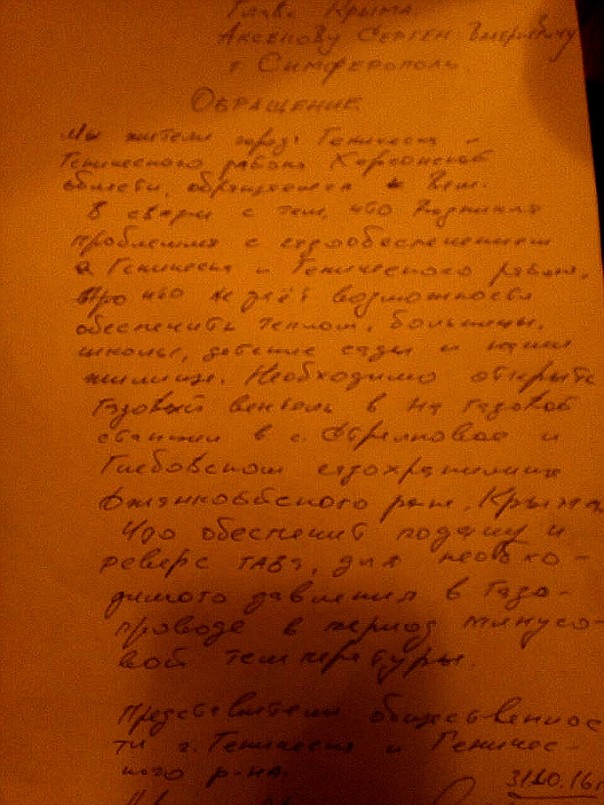 Глава Крыма
Аксенову Сергею Валериевичу
г Симферополь
ОБРАЩЕНИЕ
Мы жители города Геническа и
Генического района Херсонской
области, обращаемся к Вам.
В связи с тем, что возникла
проблемма с газообеспечением
в Геническа и Генического района,
что не даёт возможности
обеспечить теплом, больницы,
школы, детские сады и наши
жилища. Необходимо открыть
газовый вентель в на газовой
станции в с. Стрелковое и
Глебовском газохранилище
Джанкойского р-на, Крыма
что обеспечит подачу и
реверс газа, для необхо-
димого давления в газо-
проводе в период минусо-
вой температуры.
Представители общественнос
ти г. Геническа и Геничес-
кого р-на.
31.10.16г